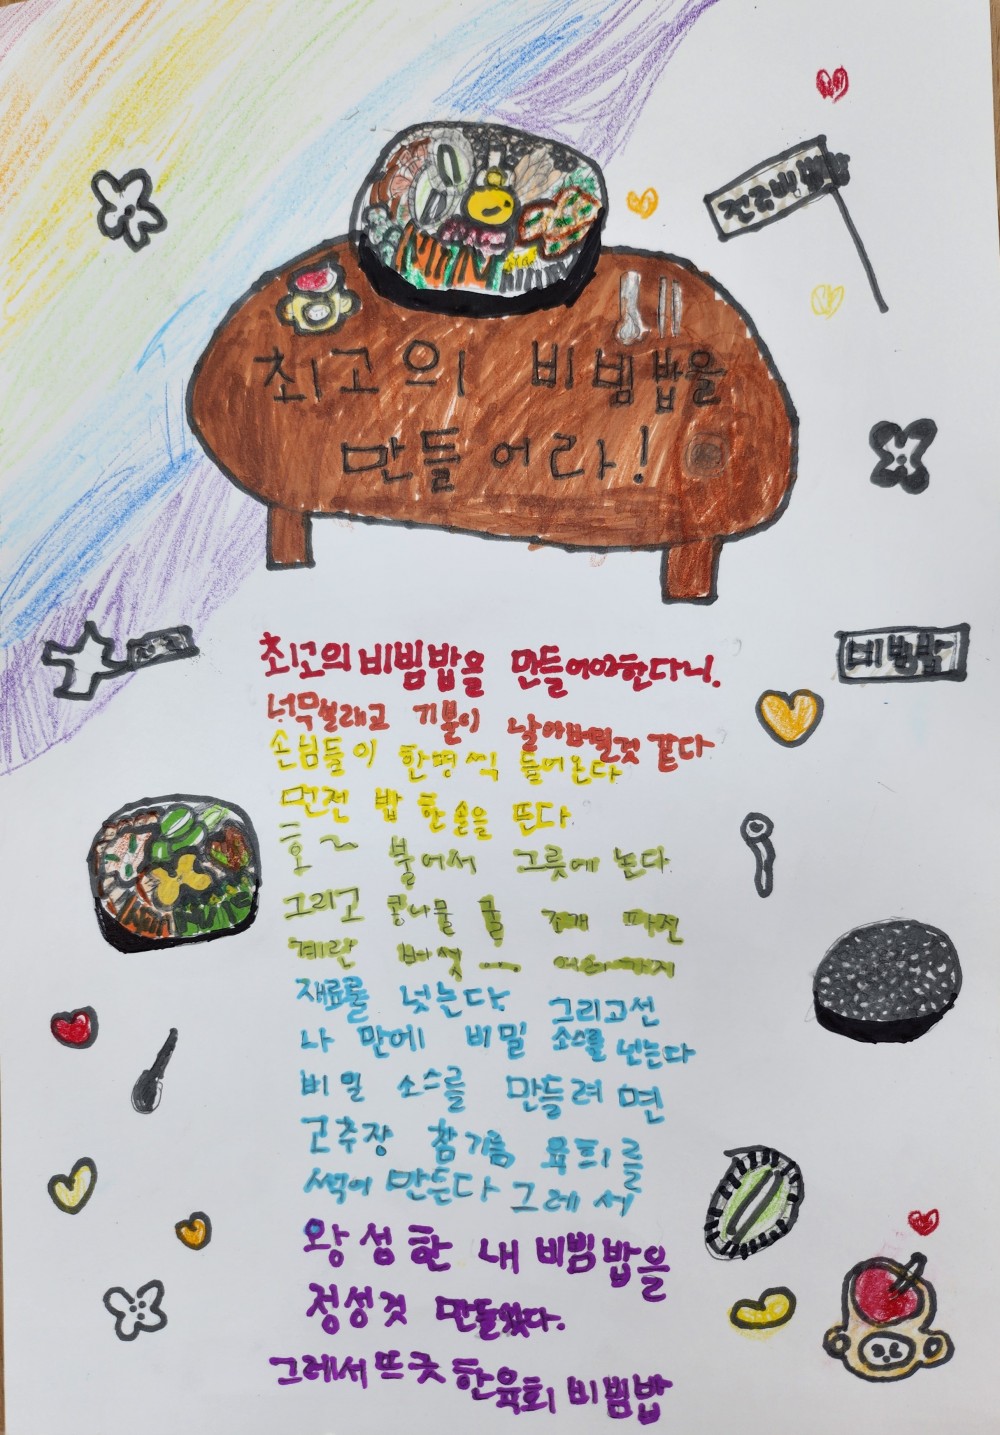 전주비빔밥
최고의 비빔밥을
만들어라!
비빔밥
최고의 비빔밥을 만들어야한다니.
너무설래고 기분이 날아버릴것 같다
손님들이 한명씩 들어온다
먼전 밥 한솔을 뜬다.
호~ 불어서 그릇에 논다
그리고 콩나물 굴 조개 파전
계란 버섯 .... 여러가지
재료를 넛는다. 그리고선
나 만에 비밀 소스를 넌는다
비밀 소스를 만들려면
고추장 참기름 육회를
썩어 만든다 그레서
왕성한 내 비빔밥을
정성것 만들었다.
그레서 뜨긋한육회 비빔밥